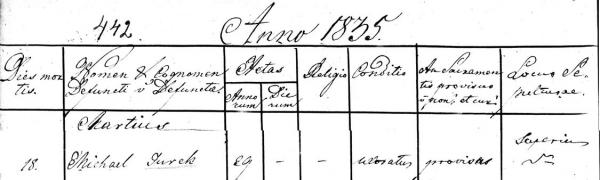 442. Anno 1835.
Dies mortis.
Nomen & Cognomen Defuncti v Defunctae
Aetas
Annorum
Dierum
Religio
Conditio
An Sacramentis provisus v̄ non, et cur?
Locus Sepulturae.
Martius
18. Michael Turek 69 - - uxoratus provisus Superius